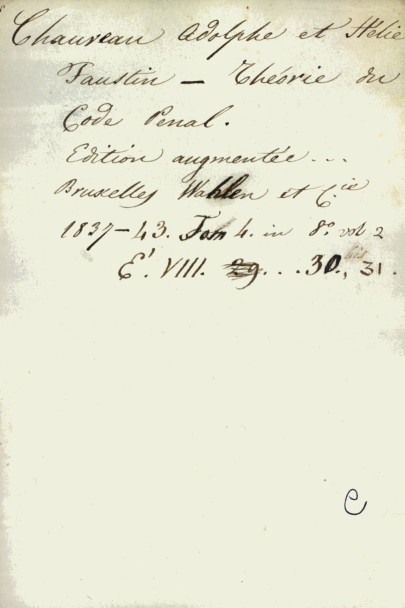 Chauveau Adolphe et Hélie
Faustin — Théorie du
Code Penal.
Edition augmentée...
Bruxelles Wahlen et C.ie
1837-43. Tom 4. in 8.o vol 2
E'. VIII. 29... 30., 31.
C